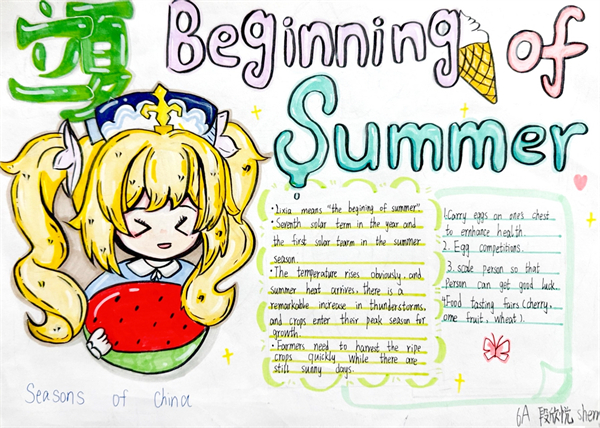 立夏
Beginning of
Summer
· Lixia means "the begining of summer"
· Seventh solar term in the year and
the first solar tearm in the summer
season.
· The temperature rises obviously, and
summer heat arrives, there is a
remarkable increase in thunderstorms,
and crops enter their peak season for
growth.
· Farmers need to harvest the ripe
crops quickly while there are
still sunny days.
1. Carry eggs on one's chest
to enhance health.
2. Egg competitions.
3. scale person so that
Person can get good luck.
4. Food tasting fairs (cherry,
ome fruit, wheat).
Seasons of China
6A 段欣悦 sherr